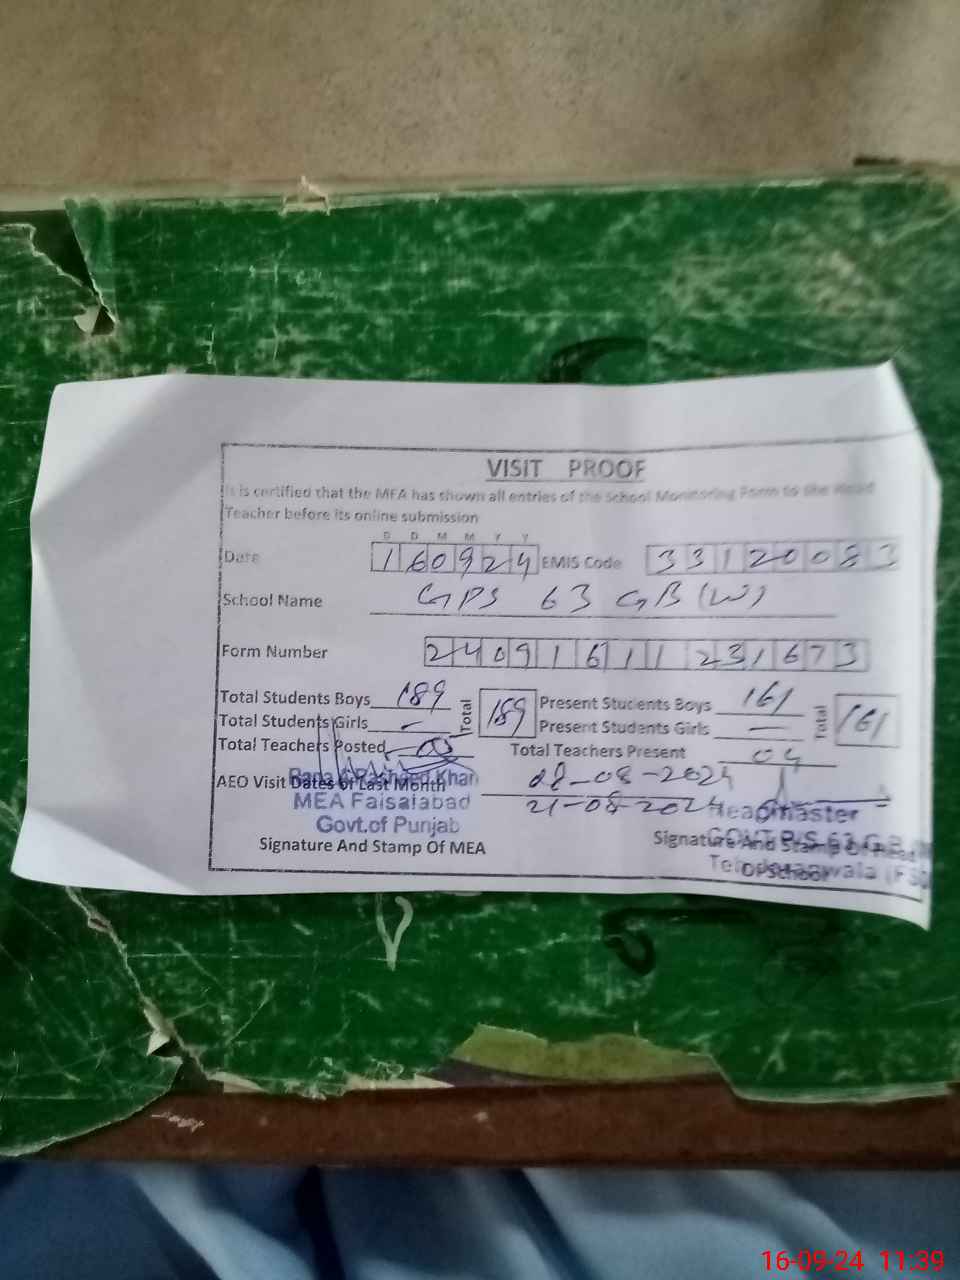 VISIT PROOF
It is certified that the MEA has shown all entries of the School Monitoring Form to the Head
Teacher before its online submission
D D M M Y Y
Date 160924 EMIS Code 33120083
School Name GPS 63 GB (W)
Form Number 2409161123 1673
Total Students Boys 189 Total 189 Present Students Boys 161 Total 161
Total Students Girls — Present Students Girls —
Total Teachers Posted Total Teachers Present 04
AEO Visit Dates of Last Month 28-08-2024
21-08-2024
Rasheed Khan
MEA Faisalabad
Govt.of Punjab
Headmaster
Signature And Stamp Of MEA
Signature And Stamp Of Head
Of School
16-09-24 11:39